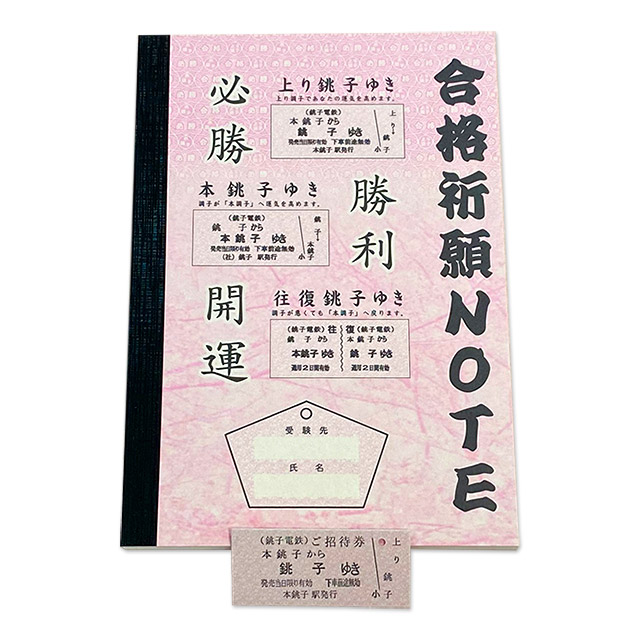 合格祈願NOTE
必勝
上り銚子ゆき
上り調子であなたの運気を高めます。
(銚子電鉄)
本銚子から
銚子ゆき
発売当日限り有効 下車前途無効
本銚子駅発行
上り銚子
小
勝利
本銚子ゆき
調子が「本調子」へ運気を高めます。
(銚子電鉄)
銚子から
本銚子ゆき
発売当日限り有効 下車前途無効
(社)銚子駅発行
銚子→本銚子
小
開運
往復銚子ゆき
調子が悪くても「本調子」へ戻ります。
(銚子電鉄)往
銚子から
本銚子ゆき
通用2日間有効
復(銚子電鉄)
本銚子から
銚子ゆき
通用2日間有効
受験先
氏名
(銚子電鉄)ご招待券
本銚子から
銚子ゆき
発売当日限り有効 下車前途無効
本銚子駅発行
上り銚子
小